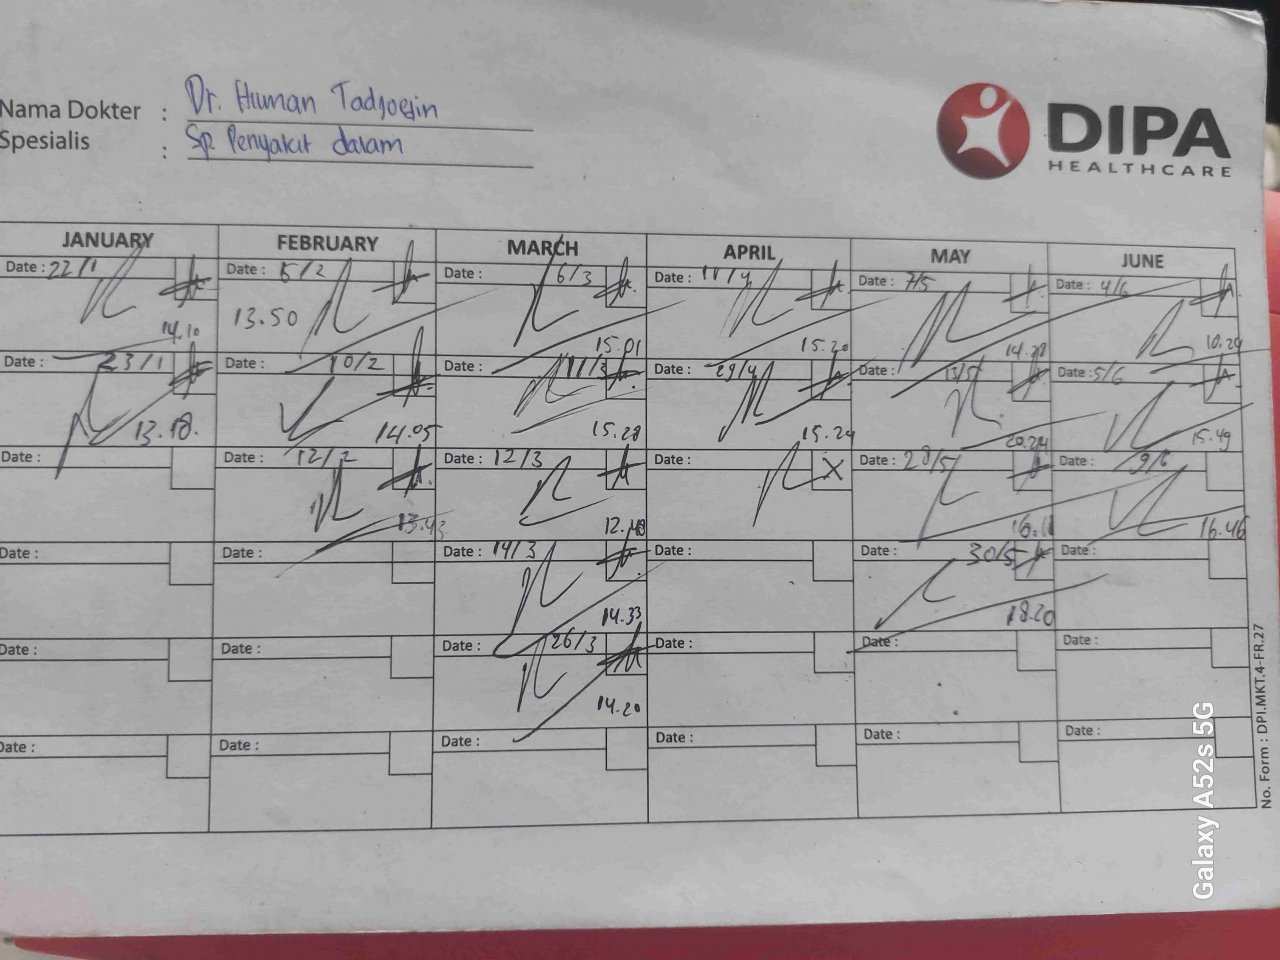 Nama Dokter : Dr. Human Tadjoedin
Spesialis : Sp. Penyakit dalam
DIPA
HEALTHCARE
JANUARY FEBRUARY MARCH APRIL MAY JUNE
Date : 22/1 Date : 5/2 Date : 6/3 Date : 11/4 Date : 7/5 Date : 4/6
14.10 13.50 15.01 15.20 14.28 10.29
Date : 23/1 Date : 10/2 Date : 11/3 Date : 29/4 Date : 13/5 Date : 5/6
13.18. 14.05 15.28 15.24 20.24 15.49
Date : Date : 12/2 Date : 12/3 Date : X Date : 28/5 Date : 9/6
13.43 12.48 16.46
Date : Date : Date : 14/3 Date : Date : 30/5 Date :
14.33 18.20
Date : Date : Date : 26/3 Date : Date : Date :
14.20
Date : Date : Date : Date : Date : Date :
No. Form : DPI.MKT.4-FR.27
Galaxy A52s 5G